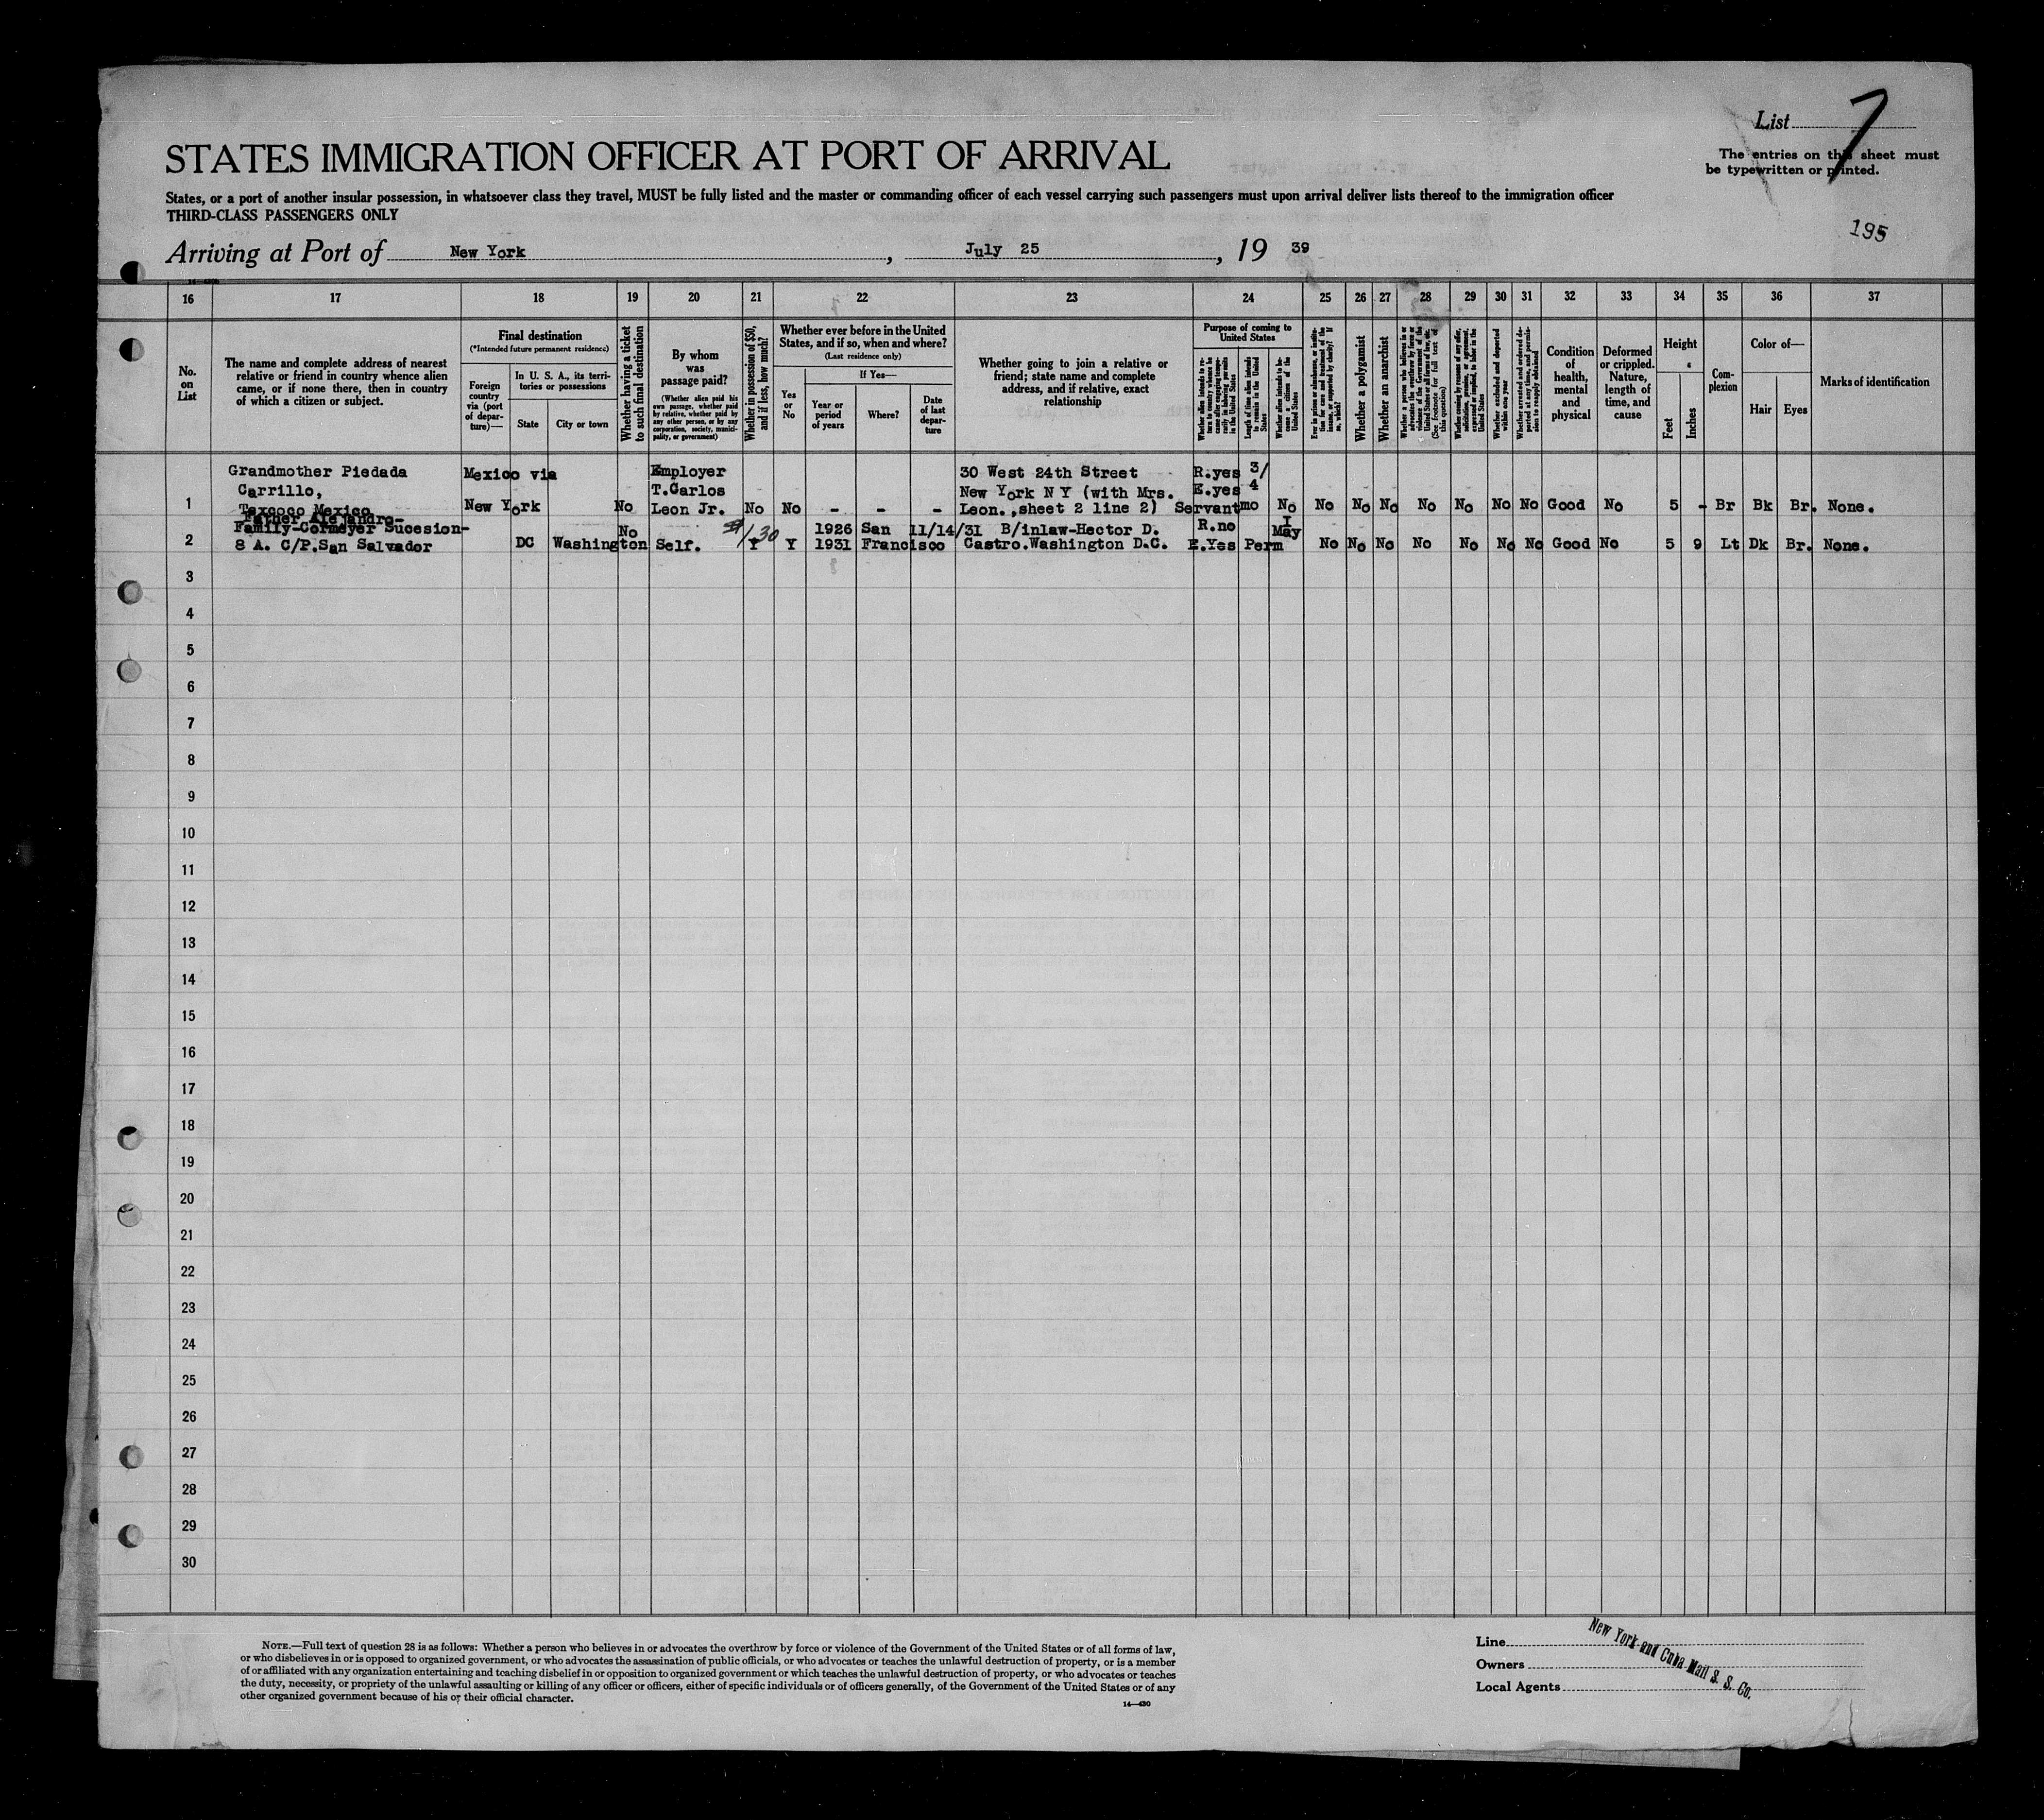 List 7
The entries on this sheet must
be typewritten or printed.
STATES IMMIGRATION OFFICER AT PORT OF ARRIVAL
States, or a port of another insular possession, in whatsoever class they travel, MUST be fully listed and the master or commanding officer of each vessel carrying such passengers must upon arrival deliver lists thereof to the immigration officer
THIRD-CLASS PASSENGERS ONLY
195
Arriving at Port of New York, July 25, 19 39
16 17 18 19 20 21 22 23 24 25 26 27 28 29 30 31 32 33 34 35 36 37
No.
on
List
The name and complete address of nearest
relative or friend in country whence alien
came, or if none there, then in country
of which a citizen or subject.
Final destination
(*Intended future permanent residence)
Foreign
country
via (port
of depar-
ture)—
In U. S. A., its terri-
tories or possessions
State
City or town
Whether having a ticket
to such final destination
By whom
was
passage paid?
(Whether alien paid his
own passage, whether paid
by relative, whether paid by
any other person, or by any
corporation, society, munici-
pality, or government)
Whether in possession of $50,
and if less, how much?
Whether ever before in the United
States, and if so, when and where?
(Last residence only)
Yes
or
No
If Yes—
Year or
period
of years
Where?
Date
of last
depar-
ture
Whether going to join a relative or
friend; state name and complete
address, and if relative, exact
relationship
Purpose of coming to
United States
Whether alien intends to re-
turn to country whence he
came after engaging tempo-
rarily in laboring pursuits
in the United States
Length of time alien intends
to remain in the United
States
Whether alien intends to be-
come a citizen of the
United States
Ever in prison or almshouse, or institu-
tion for care and treatment of the
insane, or supported by charity? If
so, which?
Whether a polygamist
Whether an anarchist
Whether a person who believes in or
advocates the overthrow by force or
violence of the Government of the
United States or all forms of law, etc.
(See footnote for full text of
this question)
Whether coming by reason of any offer,
solicitation, promise, or agreement,
expressed or implied, to labor in the
United States
Whether excluded and deported
within one year
Whether arrested and ordered de-
ported at any time, and permis-
sion to reapply obtained
Condition
of
health,
mental
and
physical
Deformed
or crippled.
Nature,
length of
time, and
cause
Height
Feet
Inches
Com-
plexion
Color of—
Hair
Eyes
Marks of identification
Grandmother Piedada Mexico via Employer 30 West 24th Street R.yes 3/
Carrillo, T.Carlos New York N Y (with Mrs. E.yes 4
1 Texcoco Mexico New York No Leon Jr. No No - - - Leon.,sheet 2 line 2) Servant mo No No No No No No No No Good No 5 - Br Bk Br. None.
Father Alejandro-
Family-Cormeyer Sucesion- No 1926 San 11/14/31 B/inlaw-Hector D. R.no I May
2 8 A. C/P.San Salvador DC Washington Self. $130 Y Y 1931 Francisco Castro.Washington D.C. E.Yes Perm No No No No No No No Good No 5 9 Lt Dk Br. None.
3
4
5
6
7
8
9
10
11
12
13
14
15
16
17
18
19
20
21
22
23
24
25
26
27
28
29
30
NOTE.—Full text of question 28 is as follows: Whether a person who believes in or advocates the overthrow by force or violence of the Government of the United States or of all forms of law,
or who disbelieves in or is opposed to organized government, or who advocates the assassination of public officials, or who advocates or teaches the unlawful destruction of property, or is a member
of or affiliated with any organization entertaining and teaching disbelief in or opposition to organized government or which teaches the unlawful destruction of property, or who advocates or teaches
the duty, necessity, or propriety of the unlawful assaulting or killing of any officer or officers, either of specific individuals or of officers generally, of the Government of the United States or of any
other organized government because of his or their official character.
14—430
Line
Owners
Local Agents
New York and Cuba Mail S. S. Co.